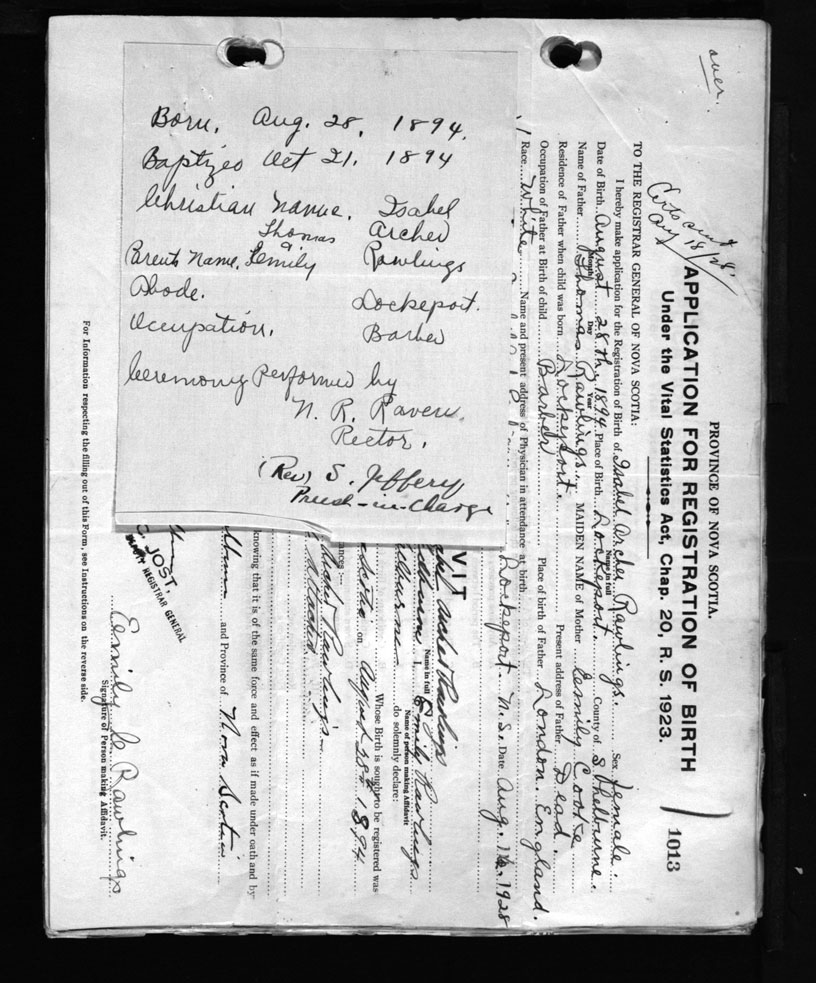 Born, Aug. 28, 1894.
Baptized Oct 21. 1894
Christian Name, Isabel
Archer
Thomas
Parents Name, & Emily Rawlings
Abode. Lockeport.
Occupation. Barber
Ceremony Performed by
N. R. Raven
Rector.
(Rev) S. Jeffery
Priest-in-Charge
over.
Certs sent
Aug 18/28.
PROVINCE OF NOVA SCOTIA.
APPLICATION FOR REGISTRATION OF BIRTH
Under the Vital Statistics Act, Chap. 20, R. S. 1923.
1013
TO THE REGISTRAR GENERAL OF NOVA SCOTIA:
I hereby make application for the Registration of Birth of Isabel Archer Rawlings. Sex female.
Name in full
Date of Birth August 28th, 1894 Place of Birth Lockeport. County of Shelburne.
Month Day Year
Name of Father Thomas Rawlings. MAIDEN NAME of Mother Emily Cooke
Residence of Father when child was born Lockeport. Present address of Father Dead.
Occupation of Father at Birth of child Barber Place of birth of Father London. England.
Race White Name and present address of Physician in attendance at birth
Lockeport. N. S. Date Aug. 1928
VIT
Archer Rawlings
Name in full
I, Emily Rawlings
Name of person making Affidavit
lburne do solemnly declare:
Whose Birth is sought to be registered was
Scotia on August 28th 1894
ances:—
Rawlings
attached
knowing that it is of the same force and effect as if made under oath and by
and Province of Nova Scotia
JOST,
REGISTRAR GENERAL
Emily C Rawlings
Signature of Person making Affidavit.
For Information respecting the filling out of this Form, see Instructions on the reverse side.